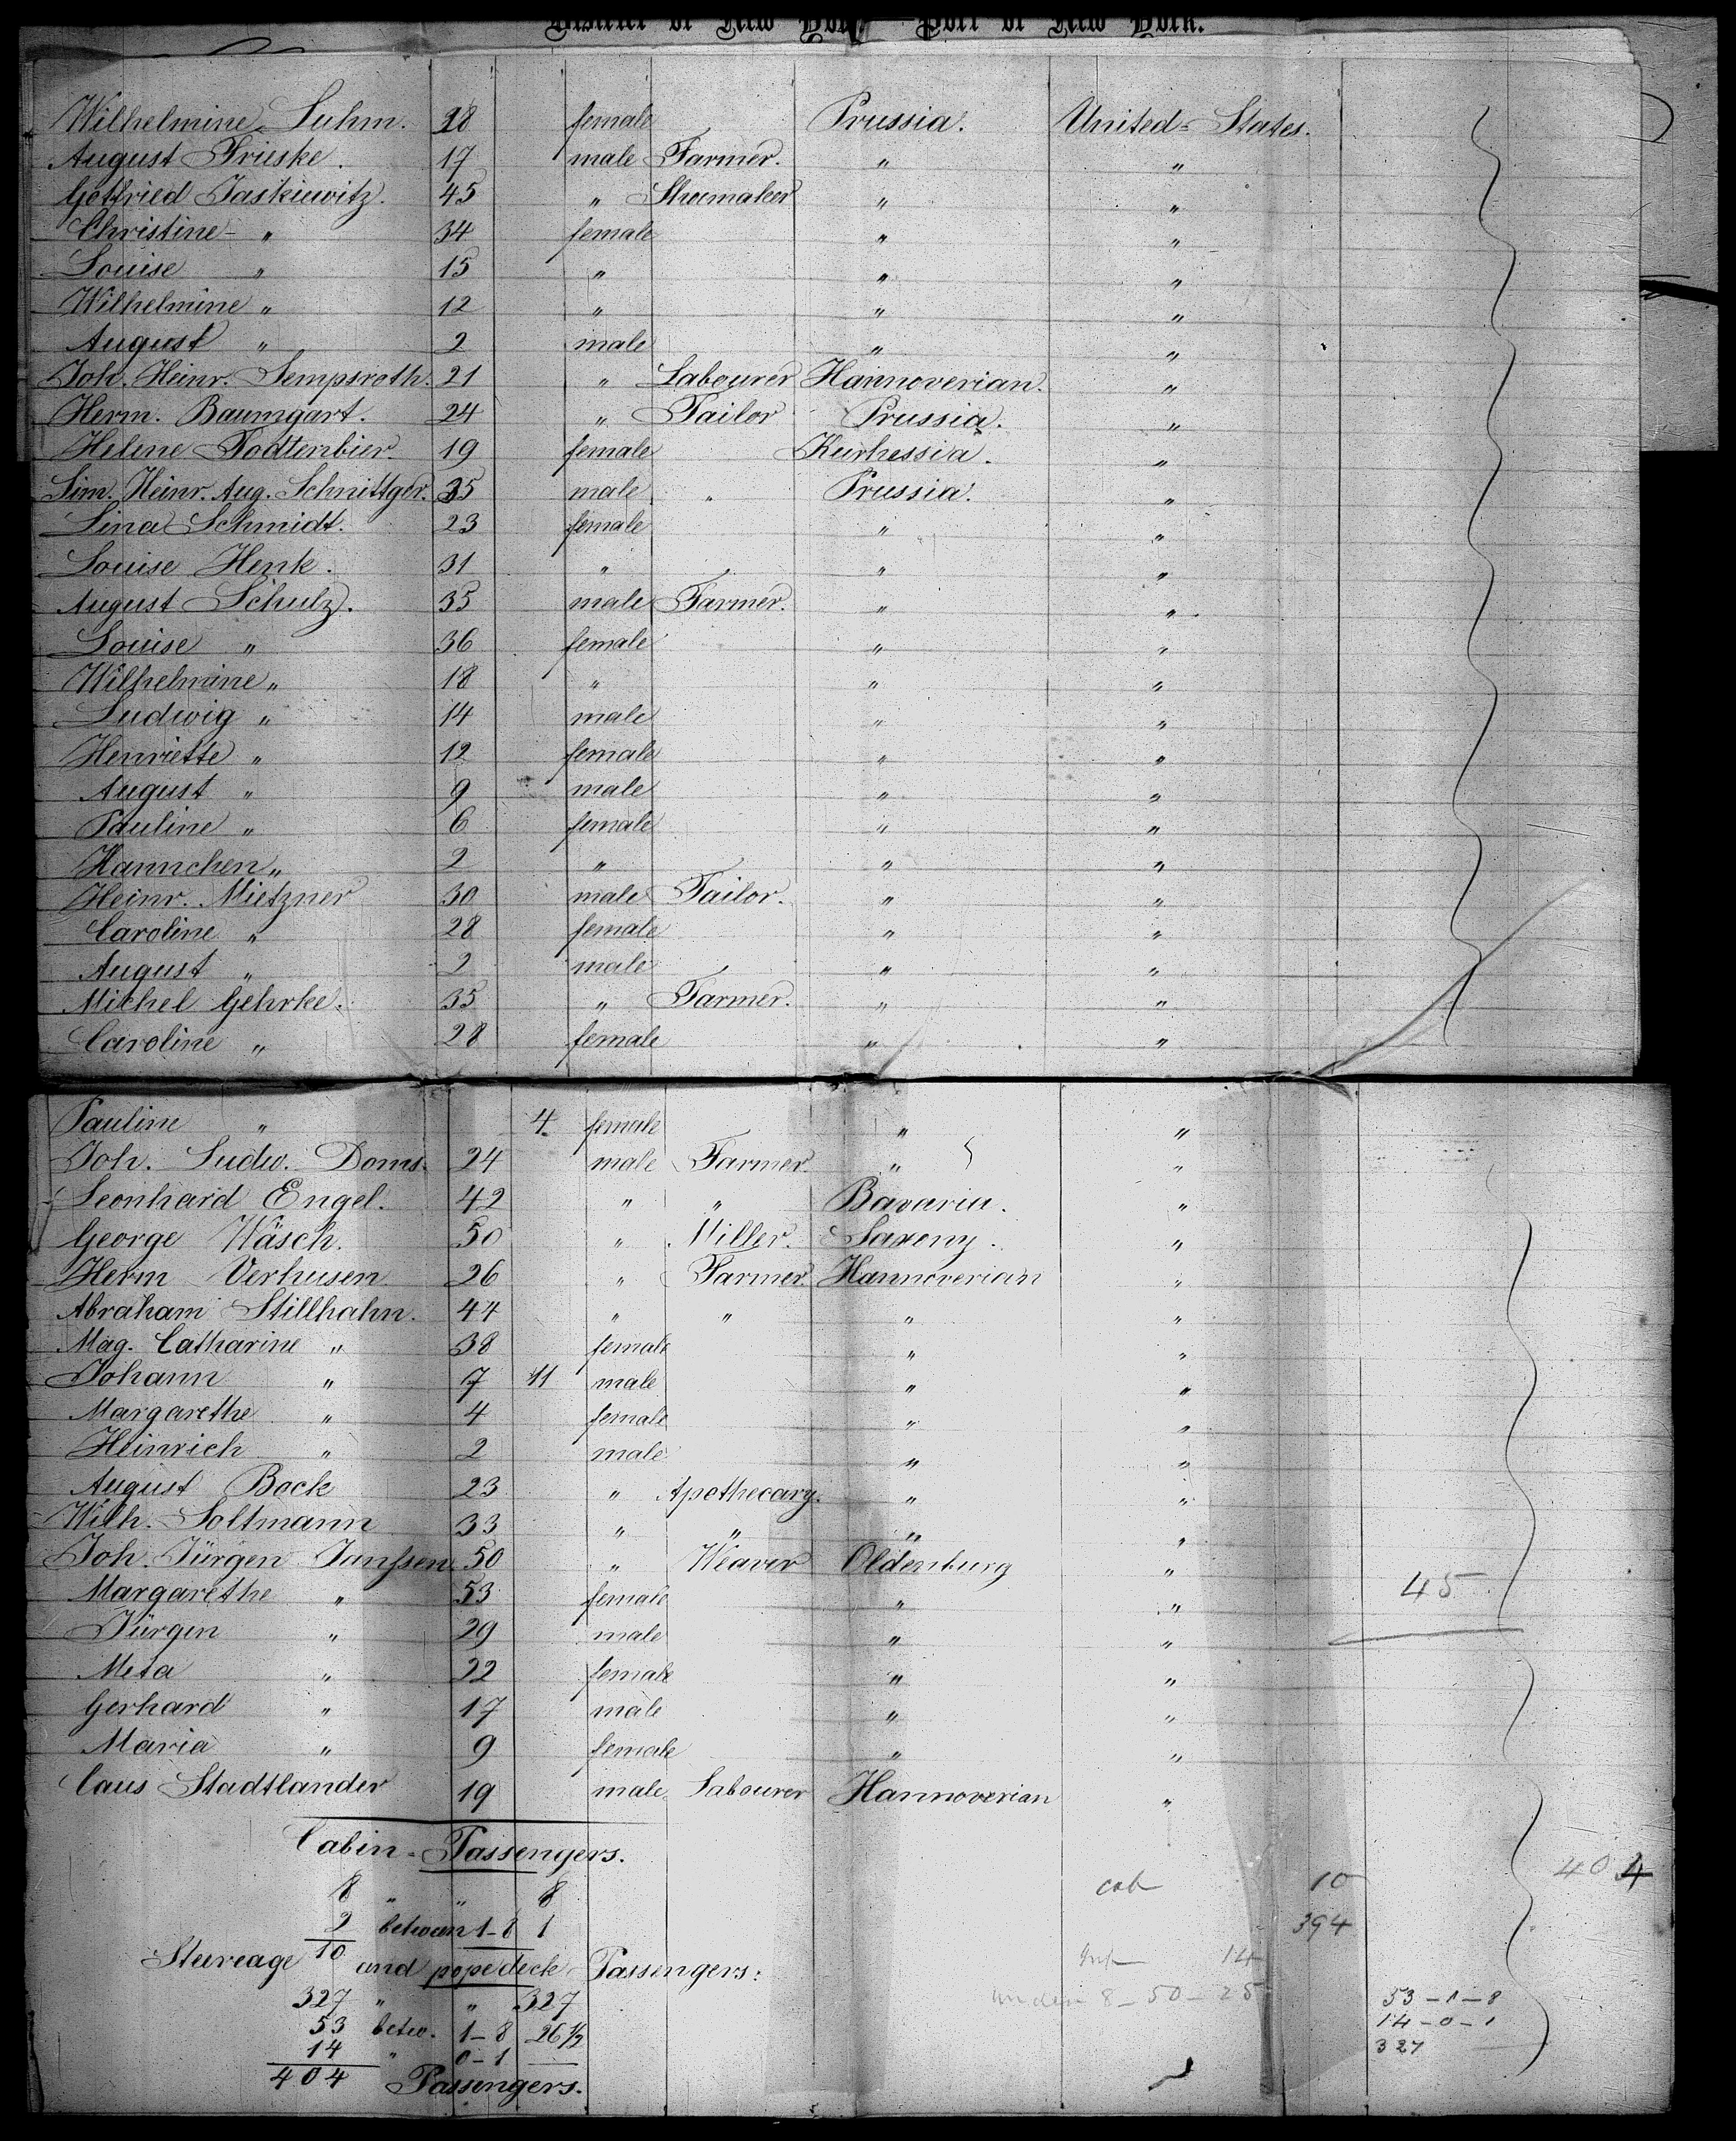 District of New York — Port of New York.
Wilhelmine Luhm. 28 female Prussia. United-States.
August Friske. 17 male Farmer. " "
Gottfried Jaskiewitz. 45 " Shoemaker " "
Christine " 34 female " "
Louise " 15 " " "
Wilhelmine " 12 " " "
August " 2 male " "
Joh. Heinr. Lempsroth. 21 " Labourer Hannoverian. "
Herm. Baumgart. 24 " Tailor Prussia. "
Helene Todtenbier. 19 female Kurhessia. "
Sim. Heinr. Aug. Schnittger. 35 male " Prussia. "
Lina Schmidt. 23 female " "
Louise Henk. 31 " " "
August Schulz. 35 male Farmer. " "
Louise " 36 female " "
Wilhelmine " 18 " " "
Ludwig " 14 male " "
Henriette " 12 female " "
August " 9 male " "
Pauline " 6 female " "
Hannchen " 2 " " "
Heinr. Mietzner 30 male Tailor. " "
Caroline " 28 female " "
August " 2 male " "
Michel Gehrke. 35 " Farmer. " "
Caroline " 28 female " "
Pauline " 4 female " "
Joh. Ludw. Doms. 24 male Farmer. " "
Leonhard Engel. 42 " " Bavaria. "
George Wäsch. 50 " Miller. Saxony. "
Herm Verhusen 26 " Farmer. Hannoverian "
Abraham Stillhahn. 44 " " " "
Mag. Catharine " 38 female " "
Johann " 7 11 male " "
Margarethe " 4 female " "
Heinrich " 2 male " "
August Bock 23 " Apothecary. " "
Wilh. Soltmann 33 " " " "
Joh. Jürgen Janssen. 50 " Weaver Oldenburg "
Margarethe " 53 female " " 45
Jürgen " 29 male " "
Meta " 22 female " "
Gerhard " 17 male " "
Maria " 9 female " "
Caus Stadtlander 19 male Labourer Hannoverian "
Cabin-Passengers.
8 " " 8 cab 10 404
2 between 1-8 1 394
10
Steereage and popedeck Passengers: Inf 14
327 " " 327 under 8 - 50 - 25 53-1-8
53 betw. 1-8 26 1/2 14-0-1
14 " 0-1 — 327
404 Passengers.